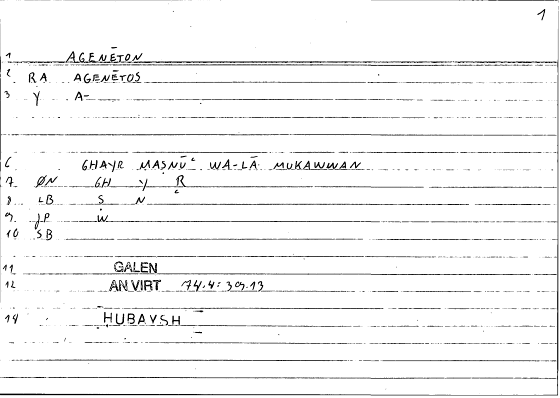 1
1 AGENĒTON
2 RA AGENĒTOS
3 Y A-
6 GHAYR MAṢNŪʿ WA-LĀ MUKAWWAN
7 ØN GH Y R
8 LB Ṣ N ʿ
9 JP W
10 SB
11 GALEN
12 AN VIRT 74.4: 39.13
14 ḤUBAYSH